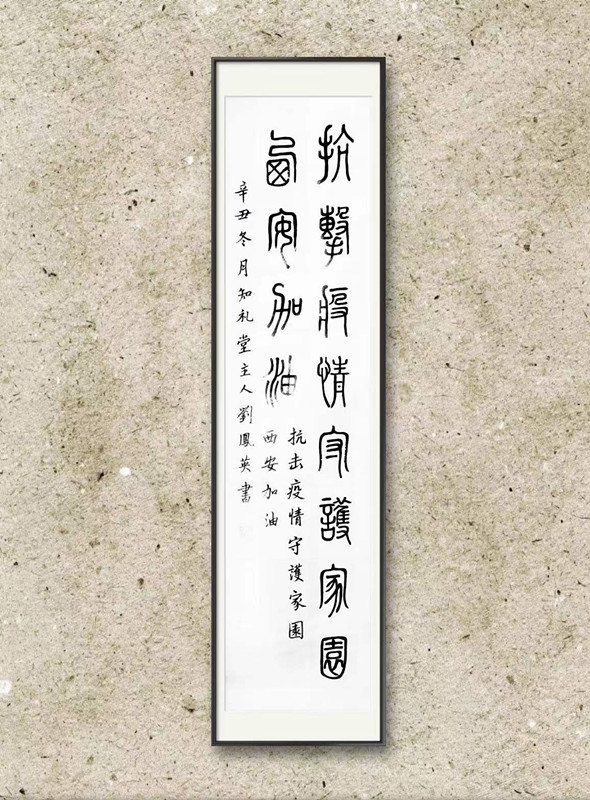 抗擊疫情守護家園
西安加油
抗击疫情守護家園
西安加油
辛丑冬月知礼堂主人劉鳳英書